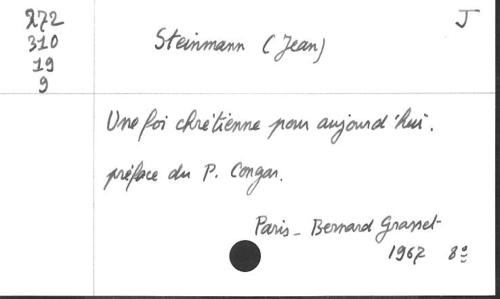 272
310
19
9
J
Steinmann (Jean)
Une foi chrétienne pour aujourd'hui.
préface du P. Congar.
Paris - Bernard Grasset
1967 8°